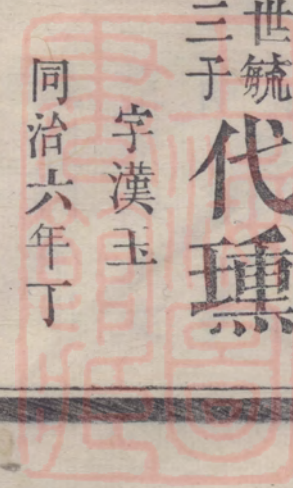 世毓
三子
代璤
字漢玉
同治六年丁